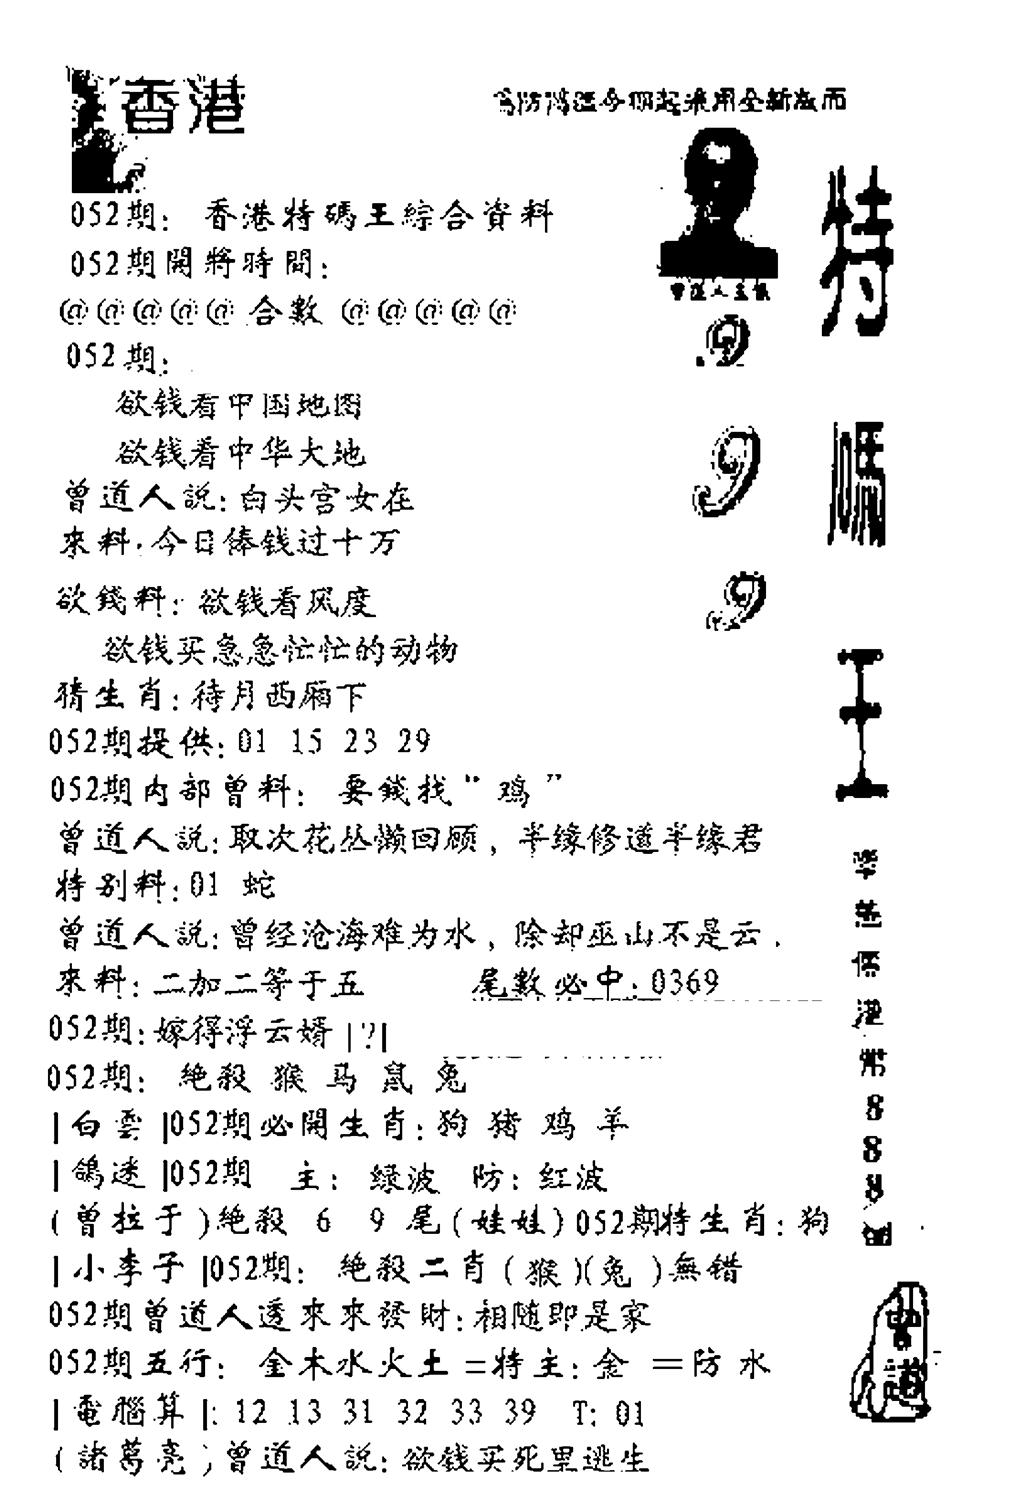 香港
052期: 香港特碼王綜合資料
052期開將時間:
@@@@@ 合數 @@@@@
052期:
欲钱看中国地图
欲钱看中华大地
曾道人説:白头宫女在
來料:今日俸钱过十万
欲錢料: 欲钱看风度
欲钱买急急忙忙的动物
猜生肖:待月西厢下
052期提供:01 15 23 29
052期内部曾料: 要錢找“鸡”
曾道人説:取次花丛懒回顾,半缘修道半缘君
特别料:01 蛇
曾道人説:曾经沧海难为水,除却巫山不是云.
來料:二加二等于五 尾數必中:0369
052期:嫁得浮云婿|?|
052期: 絶殺 猴 马 鼠 兔
|白雲|052期必開生肖:狗 猪 鸡 羊
|鴿迷|052期 主: 绿波 防: 红波
(曾拉于)絶殺 6 9 尾(娃娃)052期特生肖:狗
|小李子|052期: 絶殺二肖(猴)(兔)無错
052期曾道人透來來發財:相随即是家
052期五行: 金木水火土=特主:金 =防水
|電腦算|:12 13 31 32 33 39 T:01
(諸葛亮)曾道人説:欲钱买死里逃生
9
9
9
特
碼
王
港
幣
8
8
8
曾道